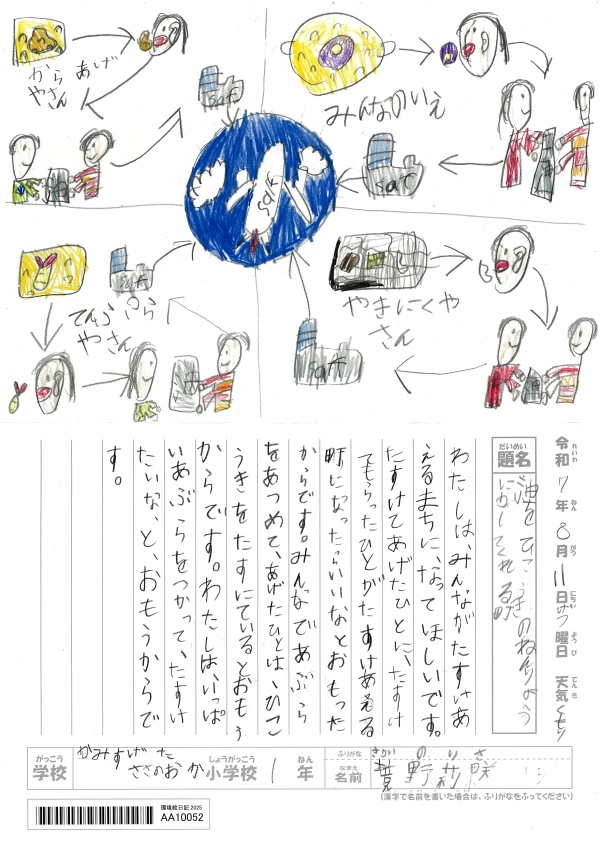 からあげ
やさん
saf
みんなのいえ
saf
saf
てんぷら
やさん
saf
やきにくや
さん
saf
令和 7年 8月 11日 げつ曜日 天気 くもり
れいわ ねん がつ にち ようび てんき
だいめい
題名
油をひこうきのねんりょう
にかしてくれる町
わたしは、みんながたすけあ
えるまちに、なってほしいです。
たすけてあげたひとに、たすけ
てもらったひとがたすけあえる
町になったらいいなとおもった
からです。みんなであぶら
をあつめて、あげたひとは、ひこ
うきをたすにているとおもう
からです。わたしは、いっぱ
いあぶらをつかって、たすけ
たいな、と、おもうからで
す。
がっこう
学校
かみすげた
ささのおか
しょうがっこう
小学校
1
ねん
年
ふりがな
さかい のりさ
なまえ
名前
境野莉咲
(漢字で名前を書いた場合は、ふりがなをふってください)
環境絵日記 2025
AA10052